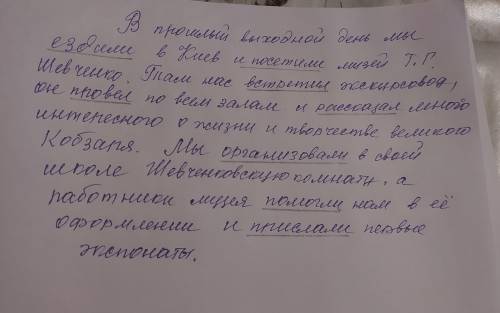 В прошлый выходной день мы
ездили в Киев и посетили музей Т.Г.
Шевченко. Там нас встретил экскурсовод,
он провел по всем залам и рассказал много
интересного о жизни и творчестве великого
Кобзаря. Мы организовали в своей
школе Шевченковскую комнату, а
работники музея помогли нам в её
оформлении и прислали первые
экспонаты.